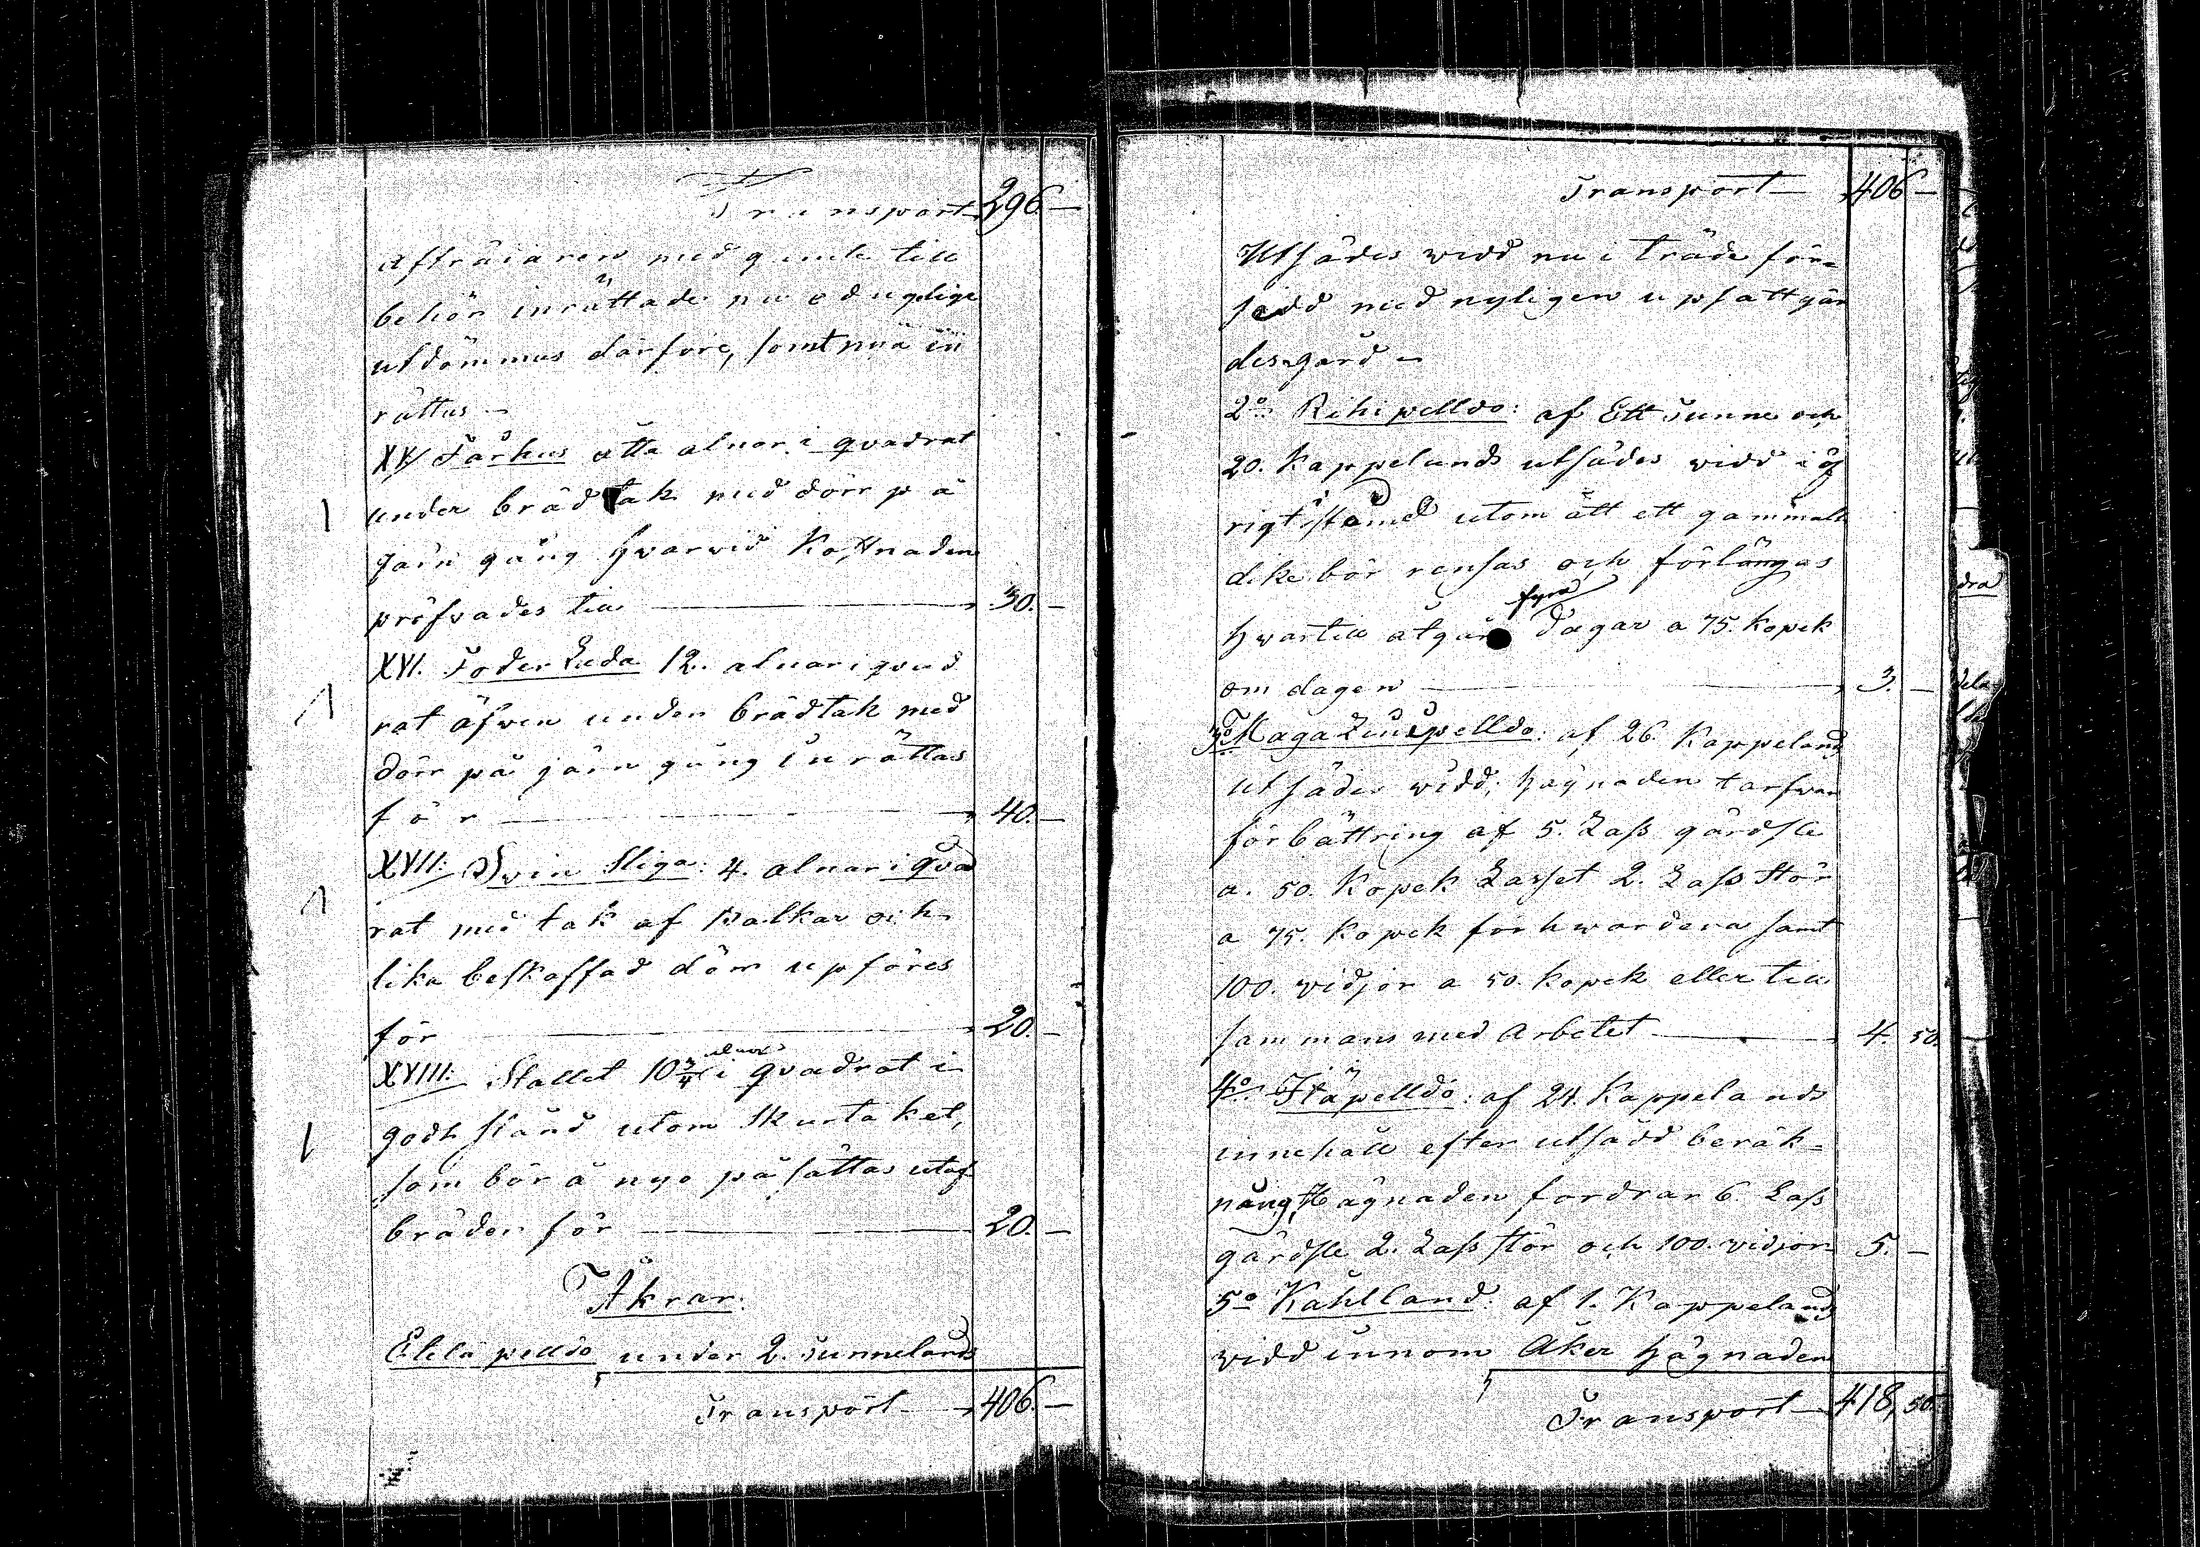 Transport 296. —
Afträdaren med gamle till
behör inrättade nu odugelige
utdömmas därföre, samt nya in
rättas —
XV, Fårhus åtta alnar i qvadrat
under brädtak med dörr på
järn gång hvarvid Kostnaden
pröfvades till — 30. —
XVI. Foder Lada 12. alnar i qvad
rat äfven under brädtak med
dörr på järn gång inrättas
för — 40. —
XVII: Svin Stiga: 4. alnar i qvad
rat med tak af Balkar och
lika beskaffad dörr upföres
för — 20. —
XVIII: Stallet 10 3/4 alnar i qvadrat i
godt stånd utom Skurtaket,
som bör å nyo påsättas utaf
bräder för — 20. —
Åkrar.
Etelä peldo under 2. Tunnelands
Transport — 406. —
Transport — 406 —
Utsädes vidd nu i träde för-
sedd med nyligen upsatt gär
desgård —
2o Rihipelldo: af Ett Tunne och
20. Kappelands utsädes vidd i öf
rigt i stånd utom att ett gammalt
dike bör rensas och förlängas
hvartill åtgår fyra dagar a 75. Kopek
om dagen — 3. —
3o Magazinspelldo: af 26 Kappelands
utsädes vidd, hägnaden tarfvar
förbättring af 5. Lass gärdsle
a. 50. Kopek Lasset 2. Lass Stör
a 75. Kopek för hvardera samt
100. vidjor a 50. kopek eller till
sammans med Arbetet — 4. 50.
4o Ytäpelldo: af 24. Kappelands
innehåll efter utsädd beräk-
nång, Hägnaden fordrar 6. Lass
gärdsle 2. Lass Stör och 100. vidjor 5. —
5o Kåhlland: af 1. Kappelands
vidd innom Åker hägnaden
Transport — 418, 50.